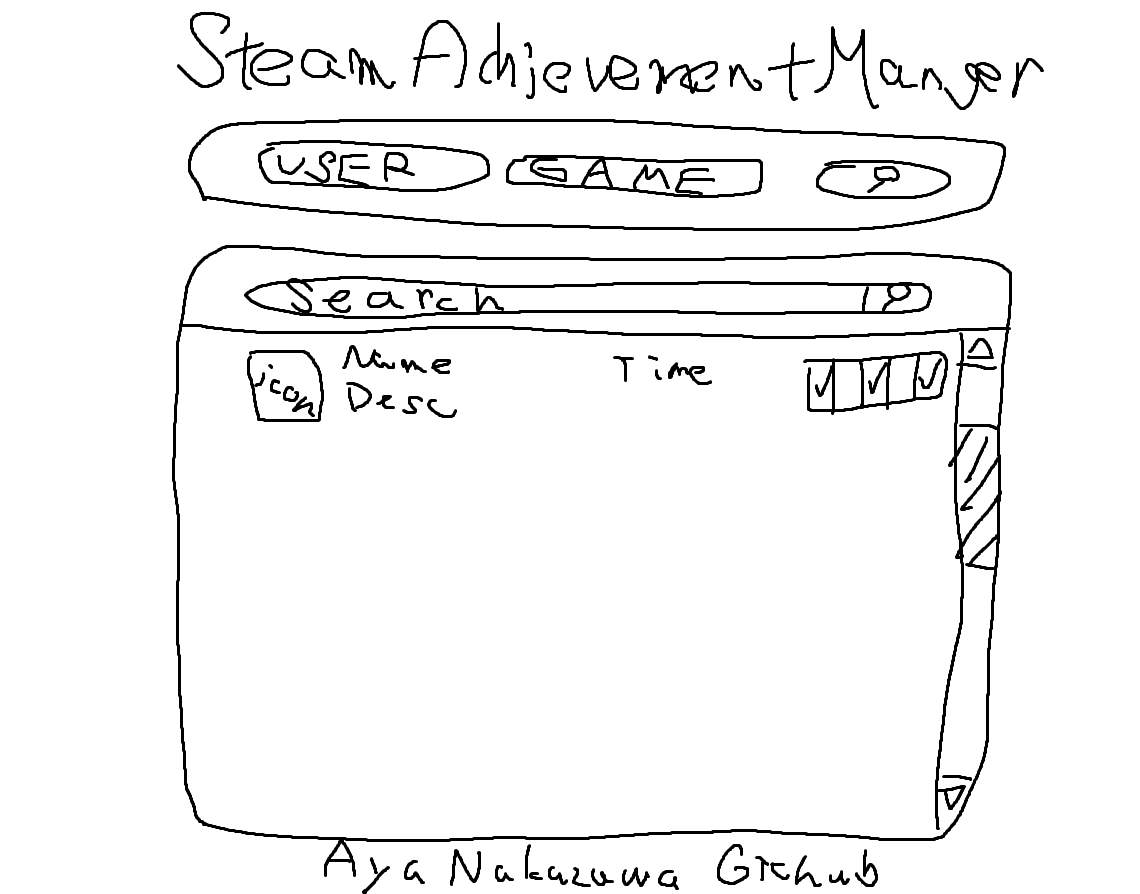 Steam Achievement Manger
USER GAME
Search
icon Name Time
Desc
Aya Nakazawa Github